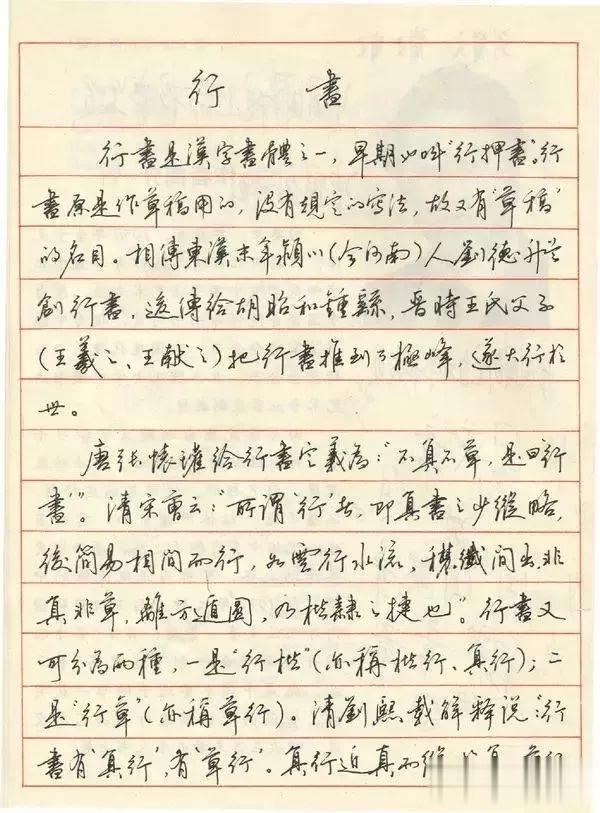 行書
行書是漢字書體之一，早期以叫“行押書”。行
書原是作草稿用的，没有規定的寫法，故又有“草稿”
的名目。相傳東漢末年潁川（今河南）人劉德升首
創行書，後傳給胡昭和鍾繇，晋時王氏父子
（王羲之、王献之）把行書推到了極峰，遂大行於
世。
唐張懷瓘給行書定義為：“不真不草，是曰行
書”。清宋曹云：“所謂‘行’者，即真書之少縱略，
後簡易相間而行，如雲行水流，穠纖間出，非
真非草，離方遁圓，乃楷隸之捷也”。行書又
可分為兩種，一是“行楷”（亦稱楷行、真行）；二
是“行草”（亦稱草行）。清劉熙載解釋説：“行
書有‘真行’，有‘草行’。真行近真而縱